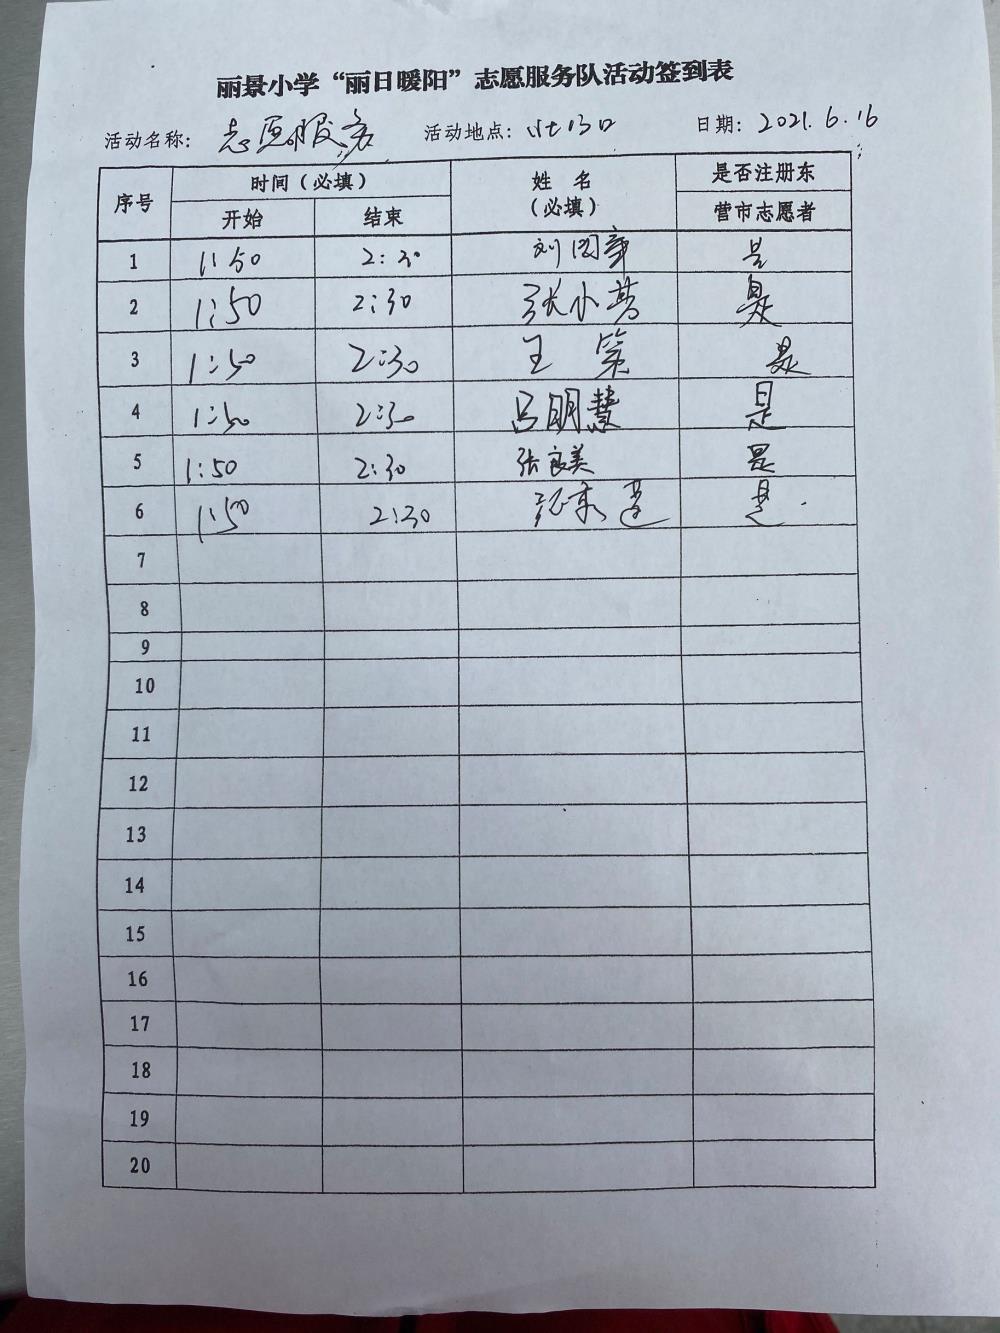 丽景小学“丽日暖阳”志愿服务队活动签到表
活动名称: 志愿服务 活动地点: 日期: 2021.6.16
序号 时间(必填) 姓名(必填) 是否注册东营市志愿者
开始 结束
1 1:50 2:30 是
2 1:50 2:30 张小 是
3 1:50 2:30 王 是
4 1:50 2:30 吕明慧 是
5 1:50 2:30 张良美 是
6 1:50 2:30 是
7
8
9
10
11
12
13
14
15
16
17
18
19
20